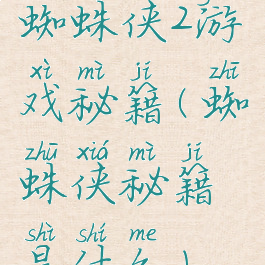 蜘蛛侠2游
xì mì jí zhī
戏秘籍(蜘
zhū xiá mì jí
蛛侠秘籍
shì shí me
是什么)